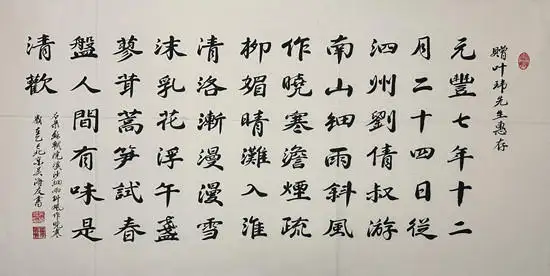 贈叶玮先生惠存
元豐七年十二
月二十四日從
泗州劉倩叔游
南山細雨斜風
作曉寒澹煙疏
柳媚晴灘入淮
清洛漸漫漫雪
沫乳花浮午盞
蓼茸蒿笋試春
盤人間有味是
清歡
蘇軾浣溪沙細雨斜風作曉寒
北京吴海友書